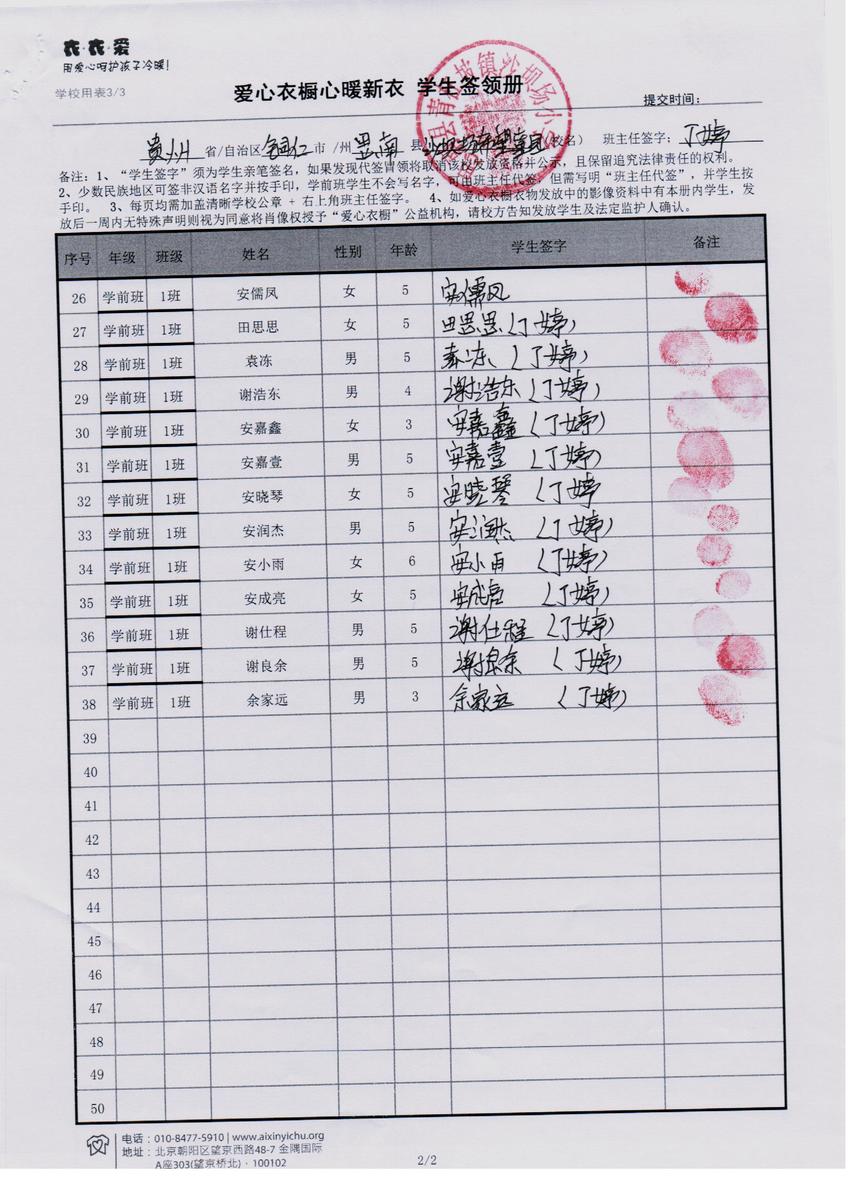 衣·衣·爱
用爱心呵护孩子冷暖!
学校用表3/3
爱心衣橱心暖新衣 学生签领册
提交时间:
贵州 省/自治区 铜仁 市/州 思南 县 (校名) 班主任签字: 丁婷
备注: 1、“学生签字”须为学生亲笔签名, 如果发现代签冒领将取消该校发放资格并公示, 且保留追究法律责任的权利。
2、少数民族地区可签非汉语名字并按手印, 学前班学生不会写名字, 可由班主任代签, 但需写明“班主任代签”, 并学生按
手印。 3、每页均需加盖清晰学校公章 + 右上角班主任签字。 4、如爱心衣橱衣物发放中的影像资料中有本册内学生, 发
放后一周内无特殊声明则视为同意将肖像权授予“爱心衣橱”公益机构, 请校方告知发放学生及法定监护人确认。
序号 年级 班级 姓名 性别 年龄 学生签字 备注
26 学前班 1班 安儒凤 女 5 安儒凤
27 学前班 1班 田思思 女 5 田思思(丁婷)
28 学前班 1班 袁冻 男 5 袁冻 (丁婷)
29 学前班 1班 谢浩东 男 4 谢浩东(丁婷)
30 学前班 1班 安嘉鑫 女 3 安嘉鑫(丁婷)
31 学前班 1班 安嘉壹 男 5 安嘉壹 (丁婷)
32 学前班 1班 安晓琴 女 5 安晓琴 (丁婷
33 学前班 1班 安润杰 男 5 安润杰 (丁婷)
34 学前班 1班 安小雨 女 6 安小雨 (丁婷)
35 学前班 1班 安成亮 女 5 安成亮 (丁婷)
36 学前班 1班 谢仕程 男 5 谢仕程 (丁婷)
37 学前班 1班 谢良余 男 5 谢良余 (丁婷)
38 学前班 1班 余家远 男 3 余家远 (丁婷)
39
40
41
42
43
44
45
46
47
48
49
50
电话:010-8477-5910 | www.aixinyichu.org
地址:北京朝阳区望京西路48-7 金隅国际
A座303(望京桥北)·100102
2/2